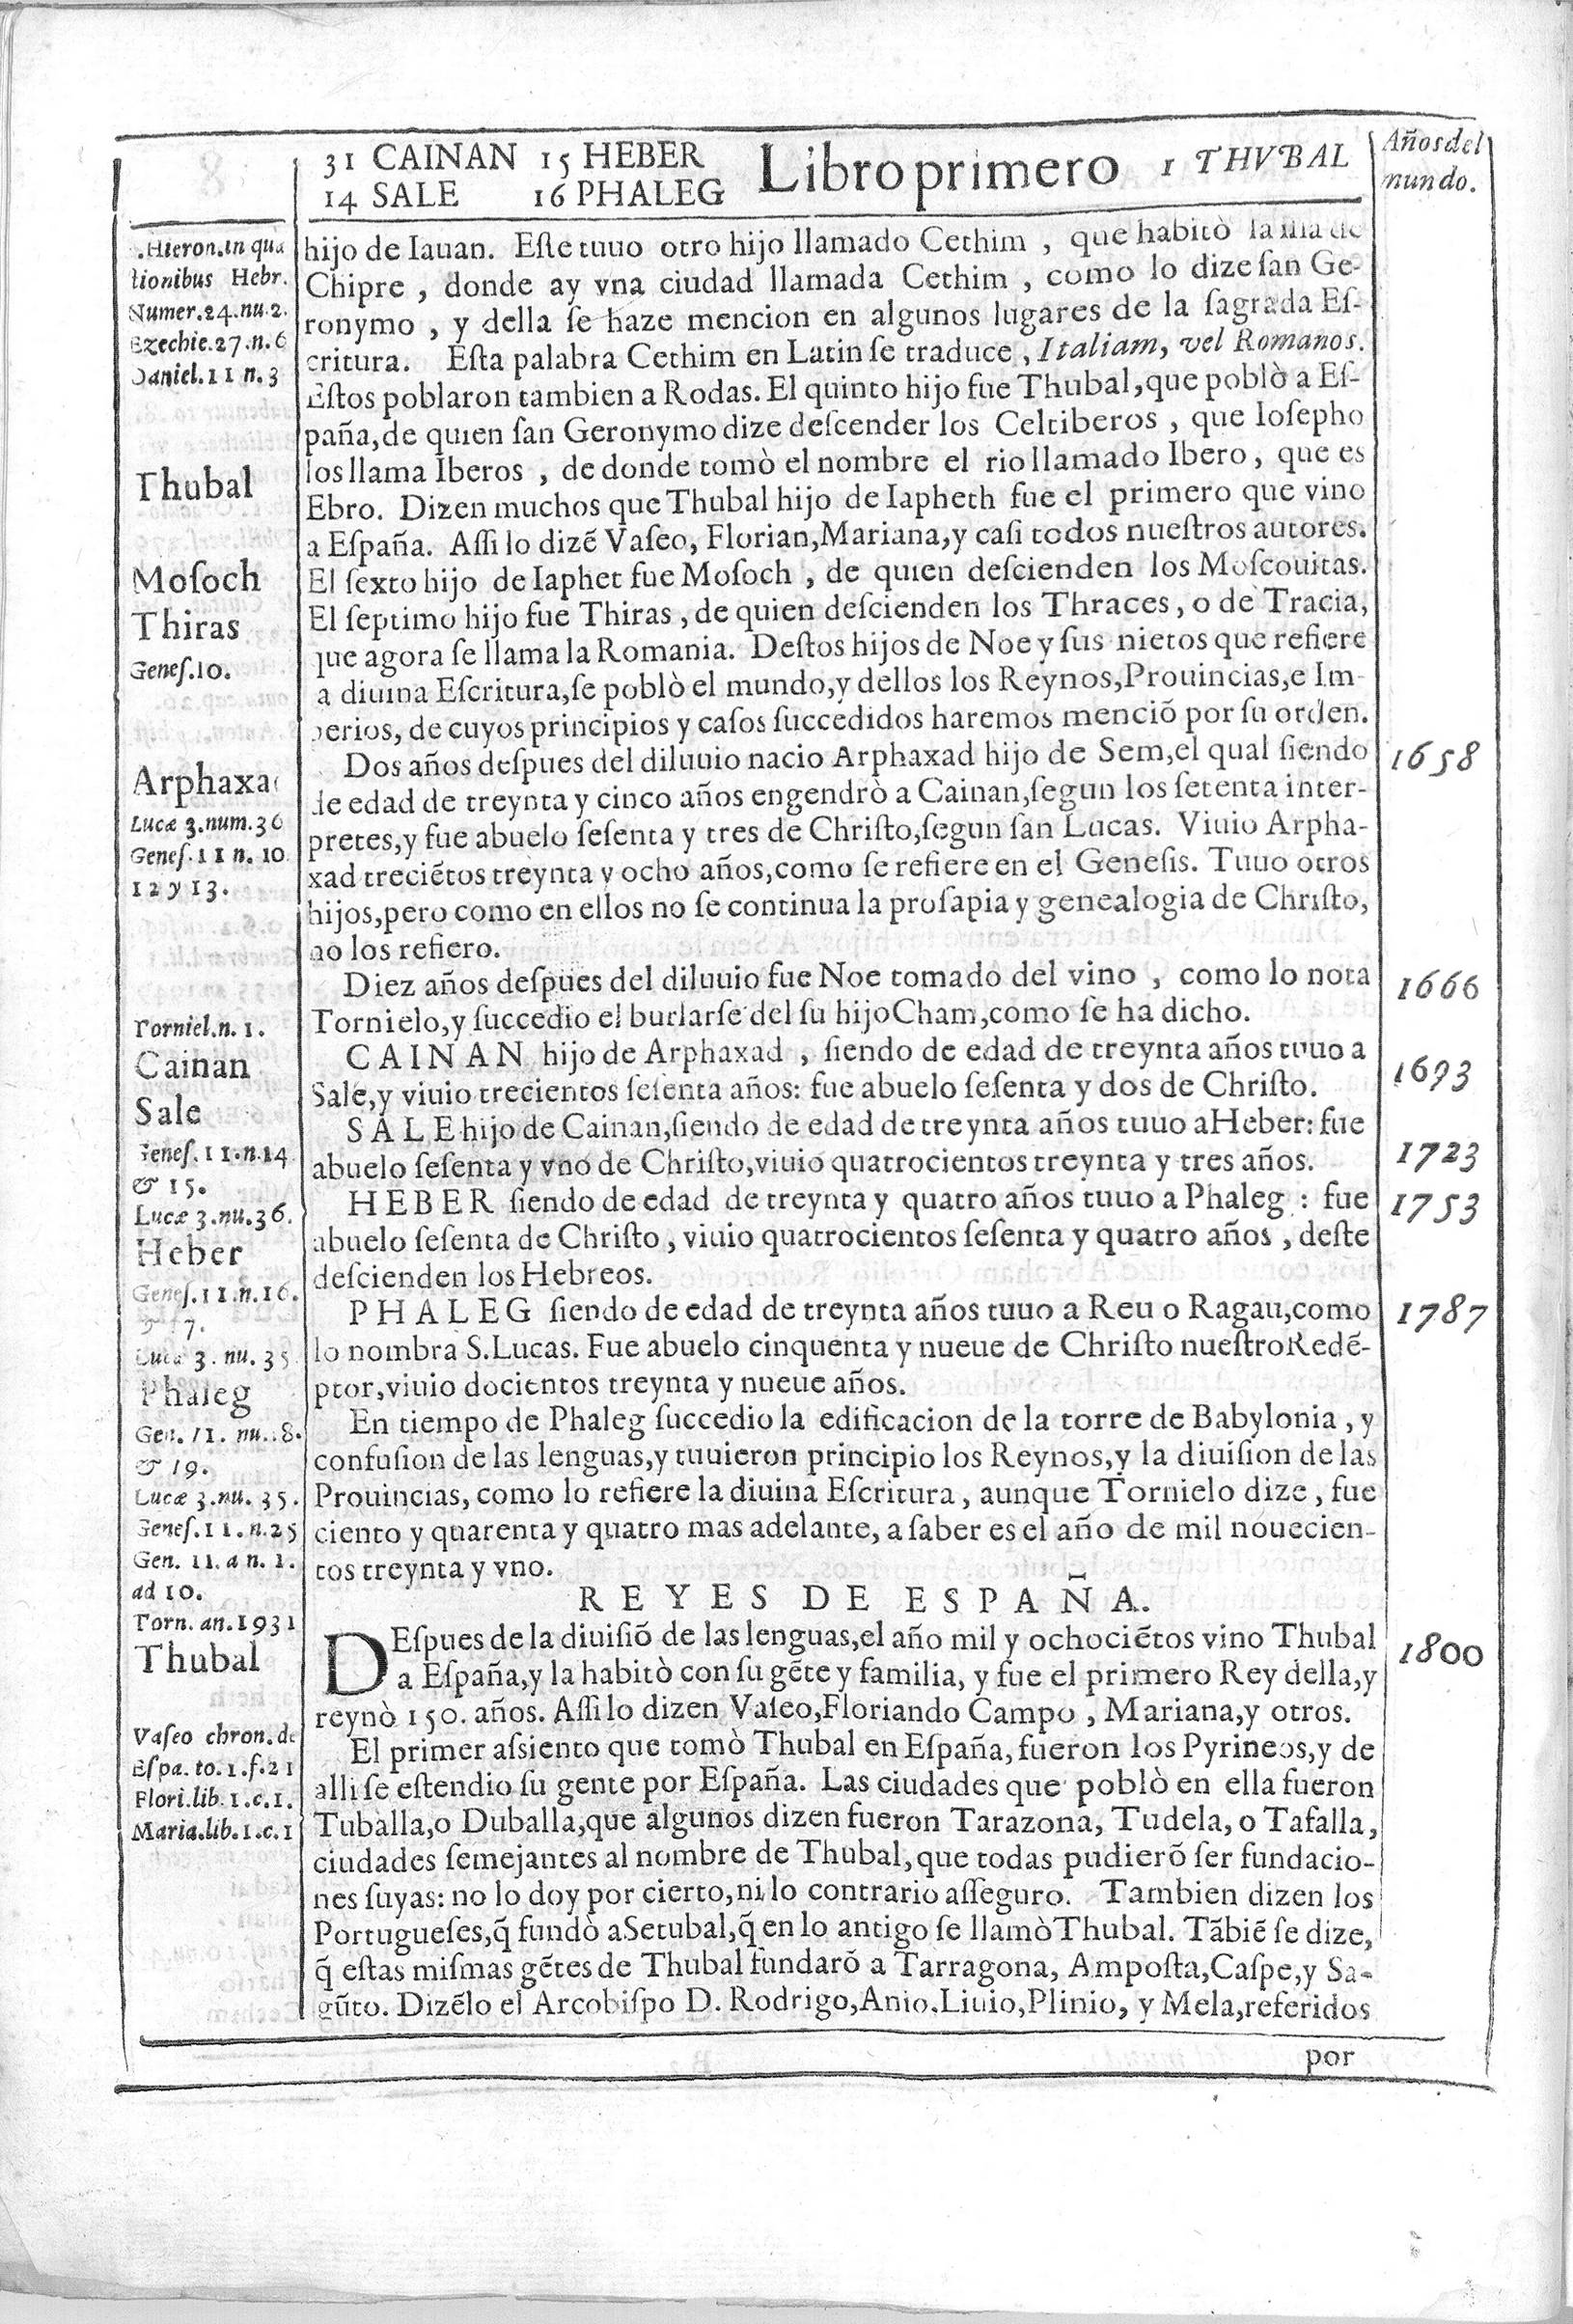 31 CAINAN 15 HEBER
14 SALE 16 PHALEG
Libro primero
1 THVBAL
Años del
mundo.
Hieron. in quæ
tionibus Hebr.
Numer.24.nu.2.
Ezechie.27.n.6
Daniel.11 n.3
Thubal
Mosoch
Thiras
Genes.10.
Arphaxad
Lucæ 3.num.36
Genes.11 n. 10
12 y 13.
Torniel.n. 1.
Cainan
Sale
Genes.11.n.14
& 15.
Lucæ 3.nu.36.
Heber
Genes.11.n.16.
Lucæ 3. nu. 35
Phaleg
Gen. 11. nu. 8.
& 19.
Lucæ 3.nu. 35.
Genes.11.n.25
Gen. 11. a n. 1.
ad 10.
Torn. an.1931
Thubal
Vaſeo chron. de
Eſpa. to.1.f.21
Flori.lib.1.c.1.
Maria.lib.1.c.1
hijo de Iauan. Eſte tuuo otro hijo llamado Cethim , que habitò
Chipre , donde ay vna ciudad llamada Cethim , como lo dize ſan Ge-
ronymo , y della ſe haze mencion en algunos lugares de la ſagrada Eſ-
critura. Eſta palabra Cethim en Latin ſe traduce , Italiam, vel Romanos.
Eſtos poblaron tambien a Rodas. El quinto hijo fue Thubal,que poblò a Eſ-
paña,de quien ſan Geronymo dize deſcender los Celtiberos , que Ioſepho
los llama Iberos , de donde tomò el nombre el rio llamado Ibero, que es
Ebro. Dizen muchos que Thubal hijo de Iapheth fue el primero que vino
a Eſpaña. Aſſi lo dizẽ Vaſeo, Florian,Mariana,y caſi todos nueſtros autores.
El ſexto hijo de Iaphet fue Moſoch , de quien deſcienden los Moſcouitas.
El ſeptimo hijo fue Thiras , de quien deſcienden los Thraces , o de Tracia,
que agora ſe llama la Romania. Deſtos hijos de Noe y ſus nietos que refiere
a diuina Eſcritura,ſe poblò el mundo,y dellos los Reynos,Prouincias,e Im-
perios, de cuyos principios y caſos ſuccedidos haremos menciõ por ſu orden.
Dos años deſpues del diluuio nacio Arphaxad hijo de Sem,el qual ſiendo
de edad de treynta y cinco años engendrò a Cainan,ſegun los ſetenta inter-
pretes,y fue abuelo ſeſenta y tres de Chriſto,ſegun ſan Lucas. Viuio Arpha-
xad treciẽtos treynta y ocho años,como ſe refiere en el Geneſis. Tuuo otros
hijos,pero como en ellos no ſe continua la proſapia y genealogia de Chriſto,
no los refiero.
Diez años deſpues del diluuio fue Noe tomado del vino , como lo nota
Tornielo,y ſuccedio el burlarſe del ſu hijo Cham,como ſe ha dicho.
CAINAN hijo de Arphaxad , ſiendo de edad de treynta años tuuo a
Sale,y viuio trecientos ſeſenta años: fue abuelo ſeſenta y dos de Chriſto.
SALE hijo de Cainan,ſiendo de edad de treynta años tuuo a Heber: fue
abuelo ſeſenta y vno de Chriſto,viuio quatrocientos treynta y tres años.
HEBER ſiendo de edad de treynta y quatro años tuuo a Phaleg : fue
abuelo ſeſenta de Chriſto , viuio quatrocientos ſeſenta y quatro años , deſte
deſcienden los Hebreos.
PHALEG ſiendo de edad de treynta años tuuo a Reu o Ragau,como
lo nombra S. Lucas. Fue abuelo cinquenta y nueue de Chriſto nueſtro Redẽ-
ptor,viuio docientos treynta y nueue años.
En tiempo de Phaleg ſuccedio la edificacion de la torre de Babylonia , y
confuſion de las lenguas,y tuuieron principio los Reynos,y la diuiſion de las
Prouincias, como lo refiere la diuina Eſcritura, aunque Tornielo dize , fue
ciento y quarenta y quatro mas adelante, a ſaber es el año de mil nouecien-
tos treynta y vno.
REYES DE ESPAÑA.
DEſpues de la diuiſiõ de las lenguas,el año mil y ochociẽtos vino Thubal
a Eſpaña,y la habitò con ſu gẽte y familia, y fue el primero Rey della,y
reynò 150. años. Aſſi lo dizen Vaſeo,Floriando Campo , Mariana,y otros.
El primer aſsiento que tomò Thubal en Eſpaña, fueron los Pyrineos,y de
alli ſe eſtendio ſu gente por Eſpaña. Las ciudades que poblò en ella fueron
Tuballa,o Duballa,que algunos dizen fueron Tarazona, Tudela, o Tafalla,
ciudades ſemejantes al nombre de Thubal,que todas pudierõ ſer fundacio-
nes ſuyas: no lo doy por cierto,ni lo contrario aſſeguro. Tambien dizen los
Portugueſes,q̃ fundò a Setubal,q̃ en lo antigo ſe llamò Thubal. Tãbiẽ ſe dize,
q̃ eſtas miſmas gẽtes de Thubal fundarõ a Tarragona, Ampoſta,Caſpe,y Sa-
gũto. Dizẽlo el Arcobiſpo D. Rodrigo,Anio,Liuio,Plinio, y Mela,referidos
por
1658
1666
1693
1723
1753
1787
1800